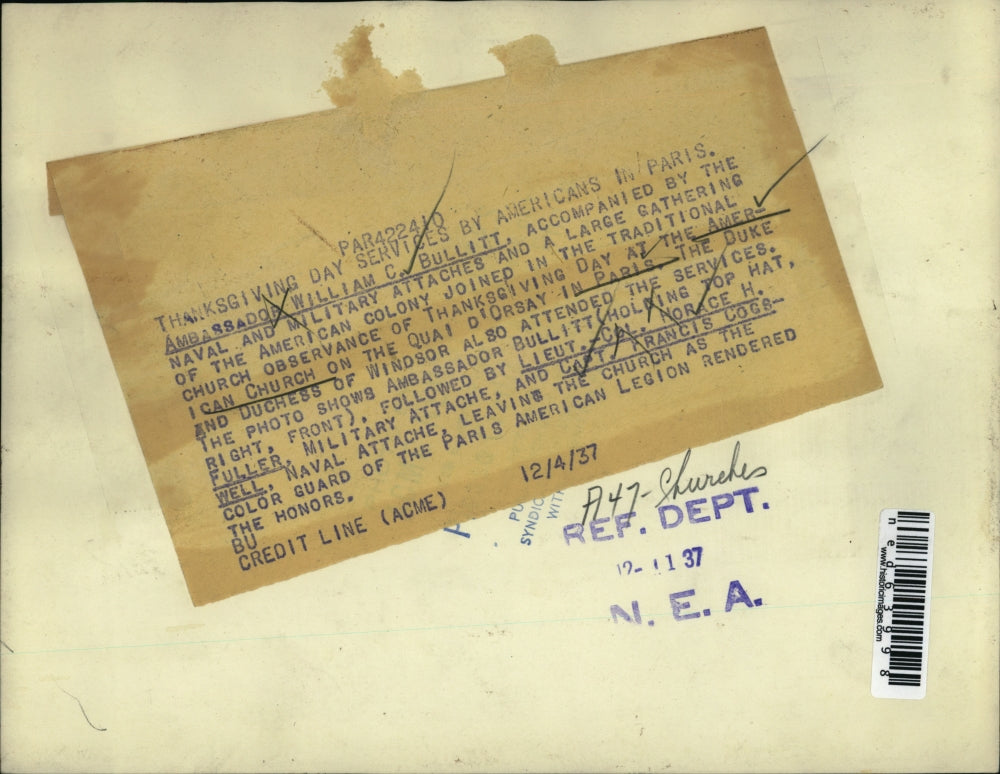 PAR422410
THANKSGIVING DAY SERVICES BY AMERICANS IN PARIS.
AMBASSADOR WILLIAM C. BULLITT, ACCOMPANIED BY THE
NAVAL AND MILITARY ATTACHES AND A LARGE GATHERING
OF THE AMERICAN COLONY JOINED IN THE TRADITIONAL
CHURCH OBSERVANCE OF THANKSGIVING DAY AT THE AMER-
ICAN CHURCH ON THE QUAI D'ORSAY IN PARIS. THE DUKE
AND DUCHESS OF WINDSOR ALSO ATTENDED THE SERVICES.
THE PHOTO SHOWS AMBASSADOR BULLITT(HOLDING TOP HAT,
RIGHT, FRONT), FOLLOWED BY LIEUT. COL. HORACE H.
FULLER, MILITARY ATTACHE, AND CAPT. FRANCIS COGS-
WELL, NAVAL ATTACHE, LEAVING THE CHURCH AS THE
COLOR GUARD OF THE PARIS AMERICAN LEGION RENDERED
THE HONORS.
BU
CREDIT LINE (ACME) 12/4/37
A47-Churches
REF. DEPT.
12-11 37
N. E. A.
SYNDIC
WITH
ned63998
www.historicimages.com